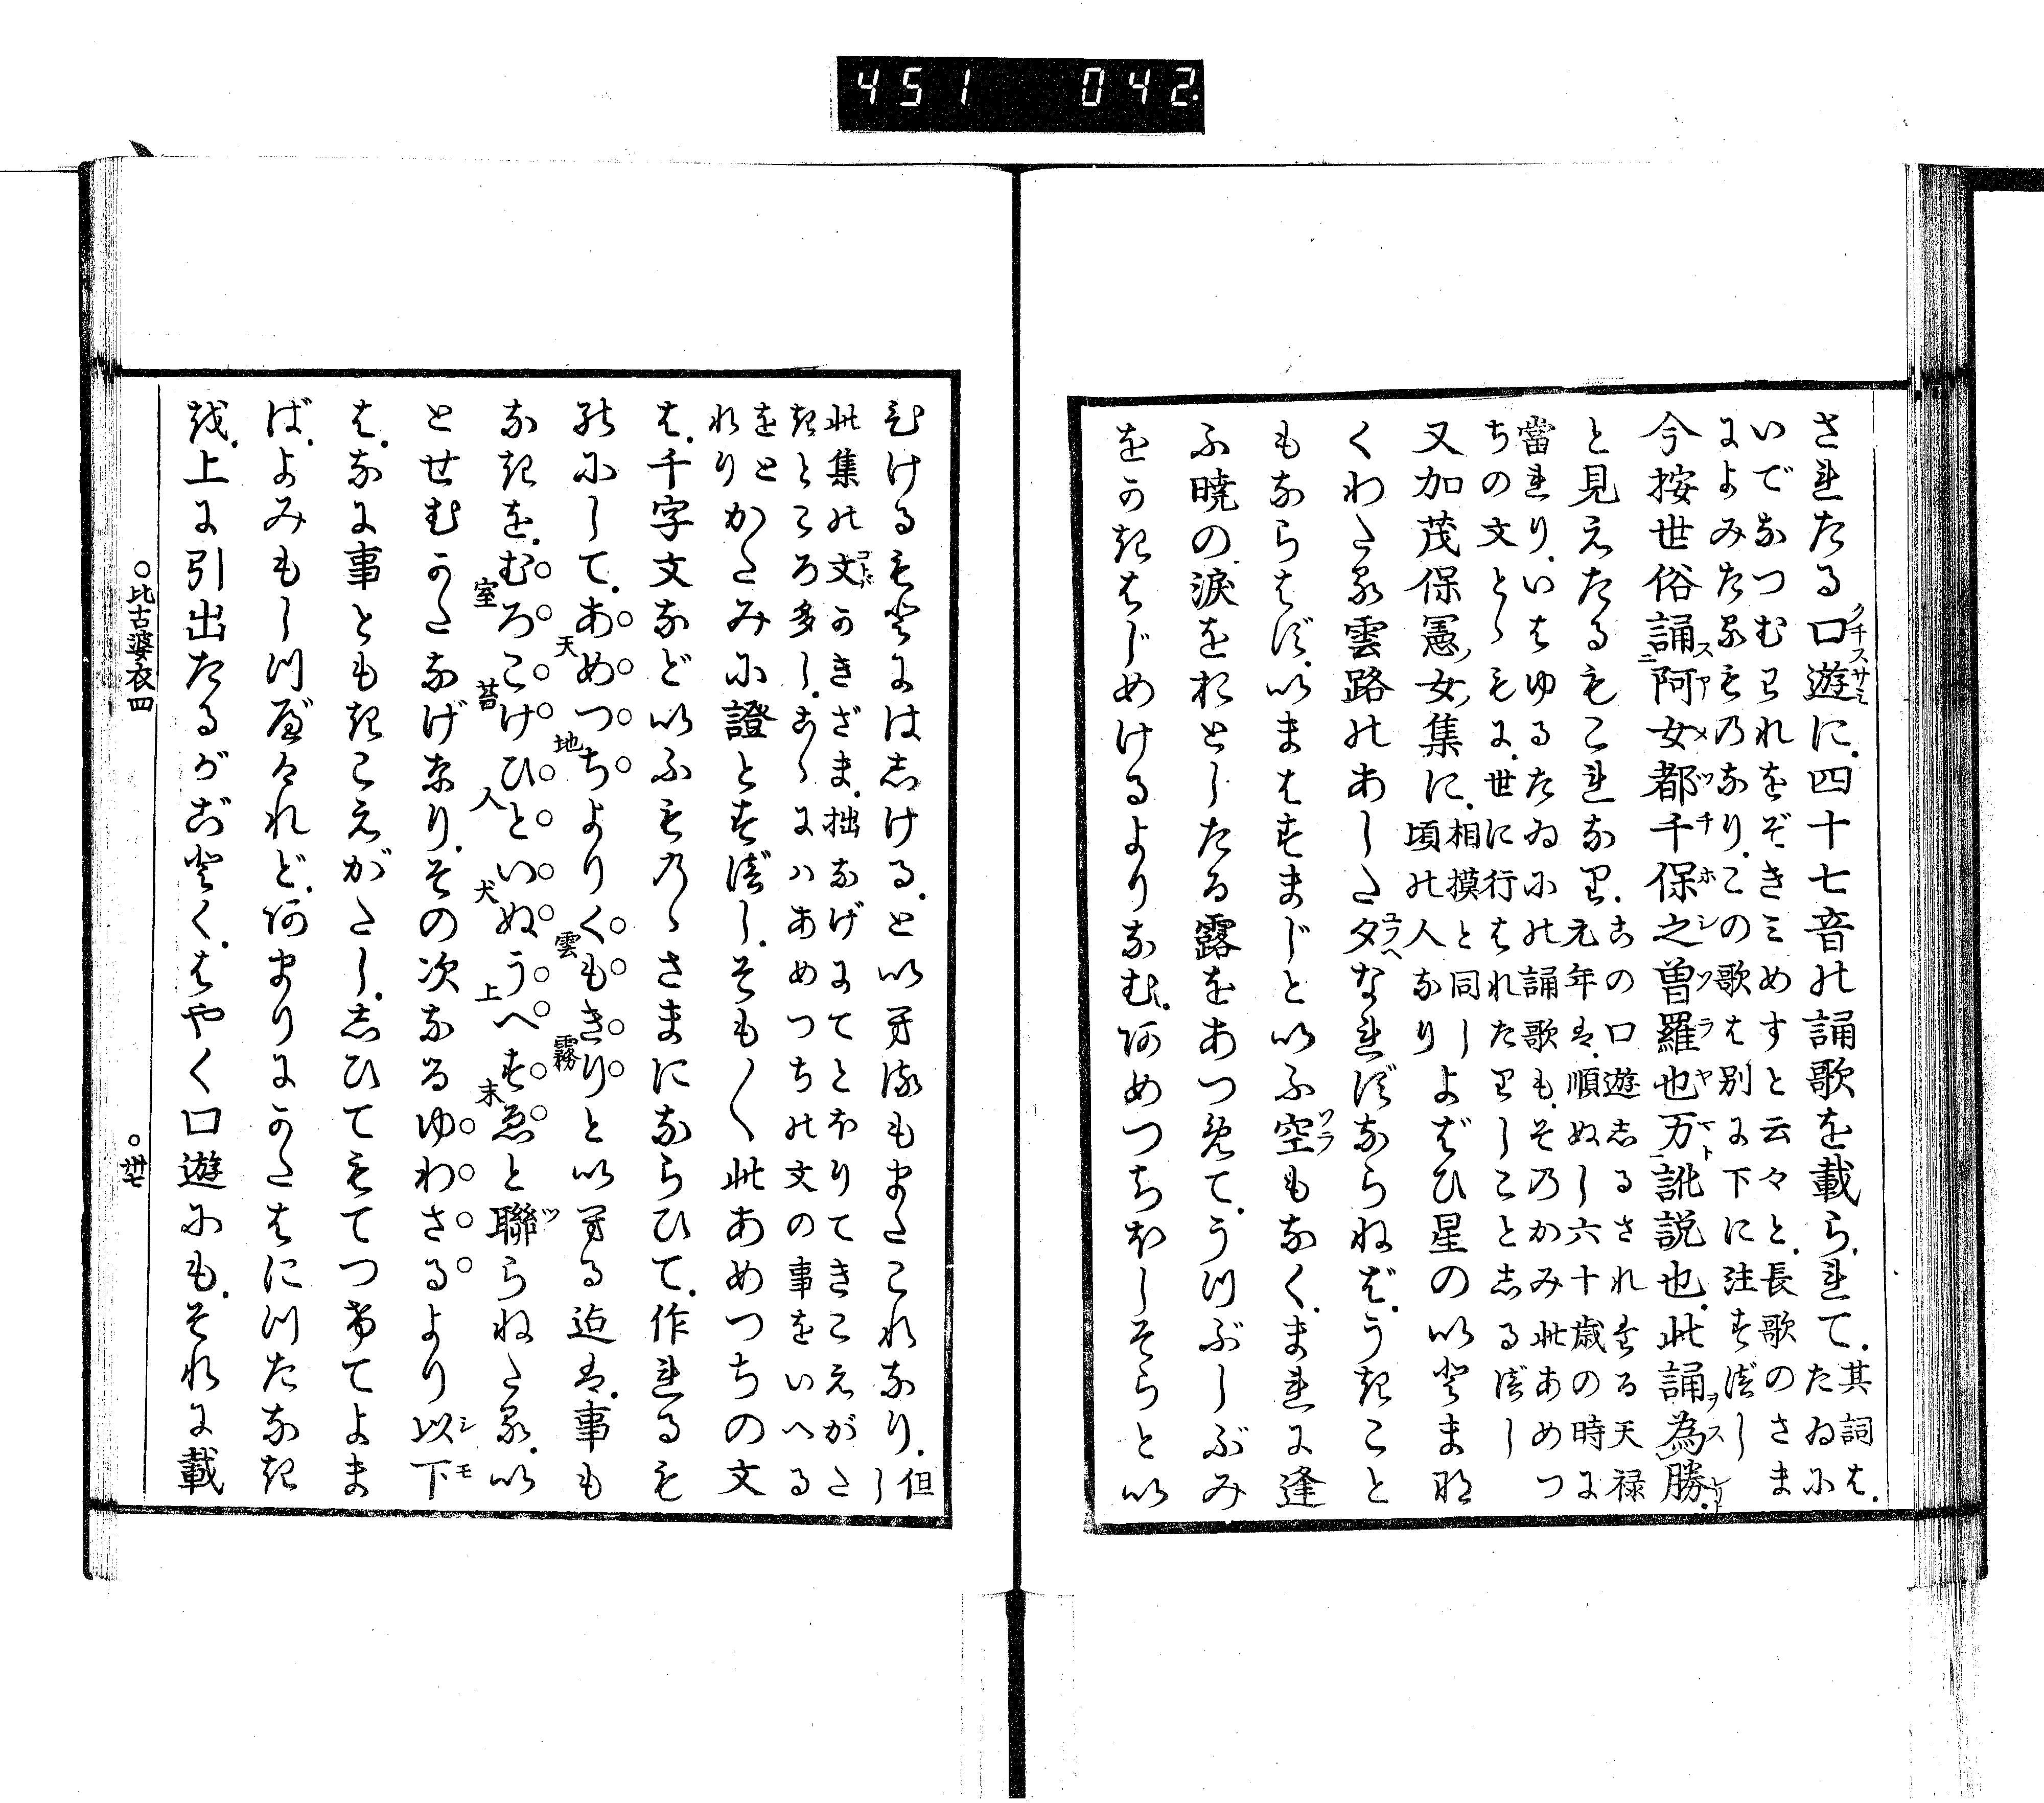 451 042.
されたる口遊に.四十七音の誦歌を載られて.其詞は.たゐに
いでなつむわれをぞきみめすと云々と.長歌のさま
によみたるもの なり.この歌は別に下に注すべし
今按世俗誦阿女都千保之曽羅也万訛説也.此誦為勝.
と見えたるもこれなり.この口遊しるされたる天禄元年は.順ぬし六十歳の時に
當れり.いはゆるたゐにの誦歌も.そのかみ此あめつ
ちの文とゝもに.世に行はれたりしことしるべし
又加茂保憲女集に.相摸と同じ頃の人なりしよばひ星のいとま
くわたる雲路のあした夕なれずならねば.うきこと
もならはず.いまはすまじといふ空もなく.まれに逢
ふ暁の.涙をおとしたる露をあつめて.うつぶしぶみ
をかきはじめけるよりなむ.あめつちほしそらとい
ひけるもとにはしける.といへるもまたこれなり.但し
此集の文かきざま.拙なげにてとほりてきこえがた
きところ多し.こゝにはあめつちの文の事をいへる
をとれり
かたみに證とすべし.そも〳〵此あめつちの文
は.千字文などいふものゝさまにならひて.作れるも
のにして.あめつちよりくもきりといへる迄は.事も
天 地 雲 霧
なきを.むろこけひといぬうへすゑと聯らねたる.い
室 苔 人 犬 上 末
とせむかたなげなり.その次なるゆわさるより以下
は.なに事ともきこえがたし.しひてもてつけてよま
ば.よみもしつべけれど.あまりにかたはにつたなき
を.上に引出たるがごとく.はやく口遊にも.それに載
○比古婆衣四 ○卅七